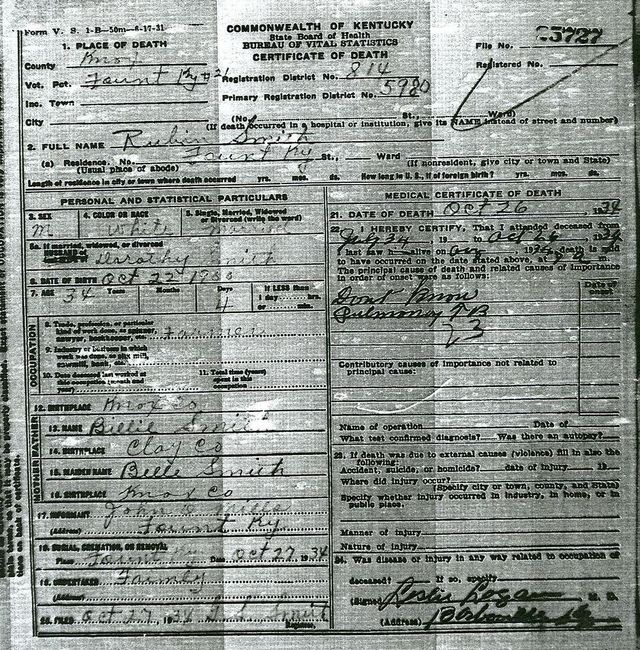 Form V. S. 1-B—50m—6-17-31
COMMONWEALTH OF KENTUCKY
State Board of Health
BUREAU OF VITAL STATISTICS
CERTIFICATE OF DEATH
File No. 23727
Registered No.
1. PLACE OF DEATH
County Knox
Vot. Pct. Fount Ky #21
Inc. Town
City
Registration District No. 814
Primary Registration District No. 5980
(No. St., Ward)
(If death occurred in a hospital or institution, give its NAME instead of street and number)
2. FULL NAME Rubin Smith
(a) Residence. No. Fount Ky St., Ward
(Usual place of abode) (If nonresident, give city or town and State)
Length of residence in city or town where death occurred yrs. mos. ds. How long in U. S., if of foreign birth? yrs. mos. ds.
PERSONAL AND STATISTICAL PARTICULARS
3. SEX 4. COLOR OR RACE 5. Single, Married, Widowed
or Divorced (write the word)
M White Married
5a. If married, widowed, or divorced
Dorothy Smith
6. DATE OF BIRTH Oct 22 1900
7. AGE Years Months Days If LESS than
34 4 1 day hrs.
or min.
OCCUPATION
8. Trade, profession, or particular
kind of work done, as spinner,
sawyer, bookkeeper, etc. Farmer
9. Industry or business in which
work was done, as silk mill,
sawmill, bank, etc.
10. Date deceased last worked at
this occupation (month and
year)
11. Total time (years)
spent in this
occupation
12. BIRTHPLACE Knox Co
FATHER
13. NAME Billie Smith
14. BIRTHPLACE Clay Co
MOTHER
15. MAIDEN NAME Belle Smith
16. BIRTHPLACE Knox Co
17. INFORMANT John D Mills
(Address) Fount Ky
18. BURIAL, CREMATION, OR REMOVAL
Place Fount Ky Date Oct 27, 1934
19. UNDERTAKER Family
(Address)
20. FILED Oct 27, 1934 Smith
MEDICAL CERTIFICATE OF DEATH
21. DATE OF DEATH Oct 26 1934
22. I HEREBY CERTIFY, That I attended deceased from
July 24 19 to Oct 26 1934
I last saw h alive on death is said
to have occurred on the date stated above, at m.
The principal cause of death and related causes of importance
in order of onset were as follows:
Date of
onset
Dont Know
Pulmonary TB
23
Contributory causes of importance not related to
principal cause:
Name of operation Date of
What test confirmed diagnosis? Was there an autopsy?
23. If death was due to external causes (violence) fill in also the
following:
Accident, suicide, or homicide? date of injury 19
Where did injury occur?
(Specify city or town, county, and State)
Specify whether injury occurred in industry, in home, or in
public place.
Manner of injury
Nature of injury
24. Was disease or injury in any way related to occupation of
deceased? If so, specify
(Signed) Leslie Logan M. D.
(Address) Barbourville Ky